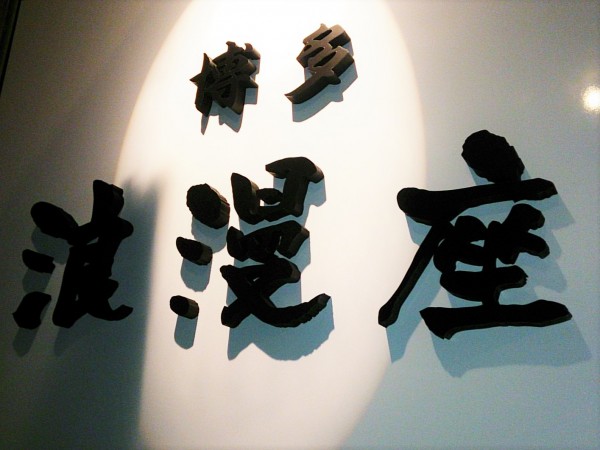 博多
浪漫座